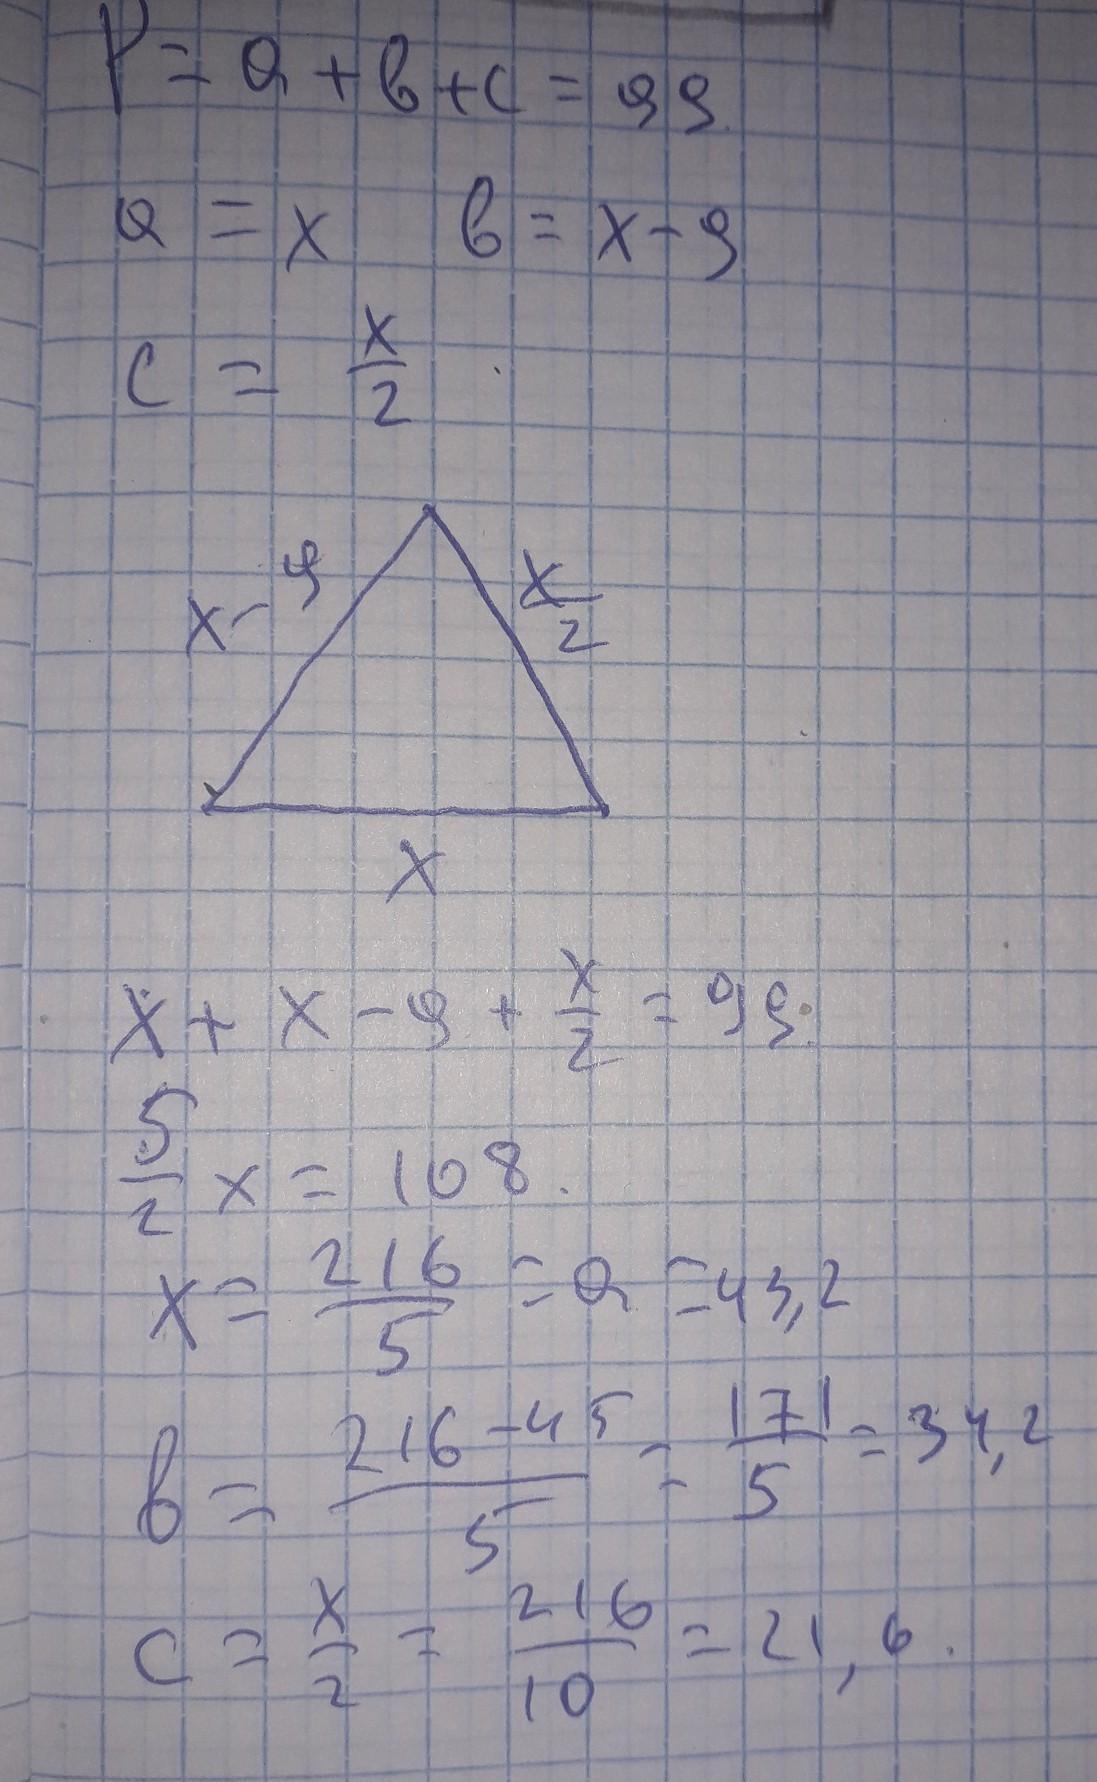 P = a + b + c = 99.
a = x b = x - 9
c = x/2
x - 9 x/2
x
x + x - 9 + x/2 = 99.
5/2 x = 108.
x = 216/5 = a = 43,2
b = 216 - 45/5 = 171/5 = 34,2
c = x/2 = 216/10 = 21,6.